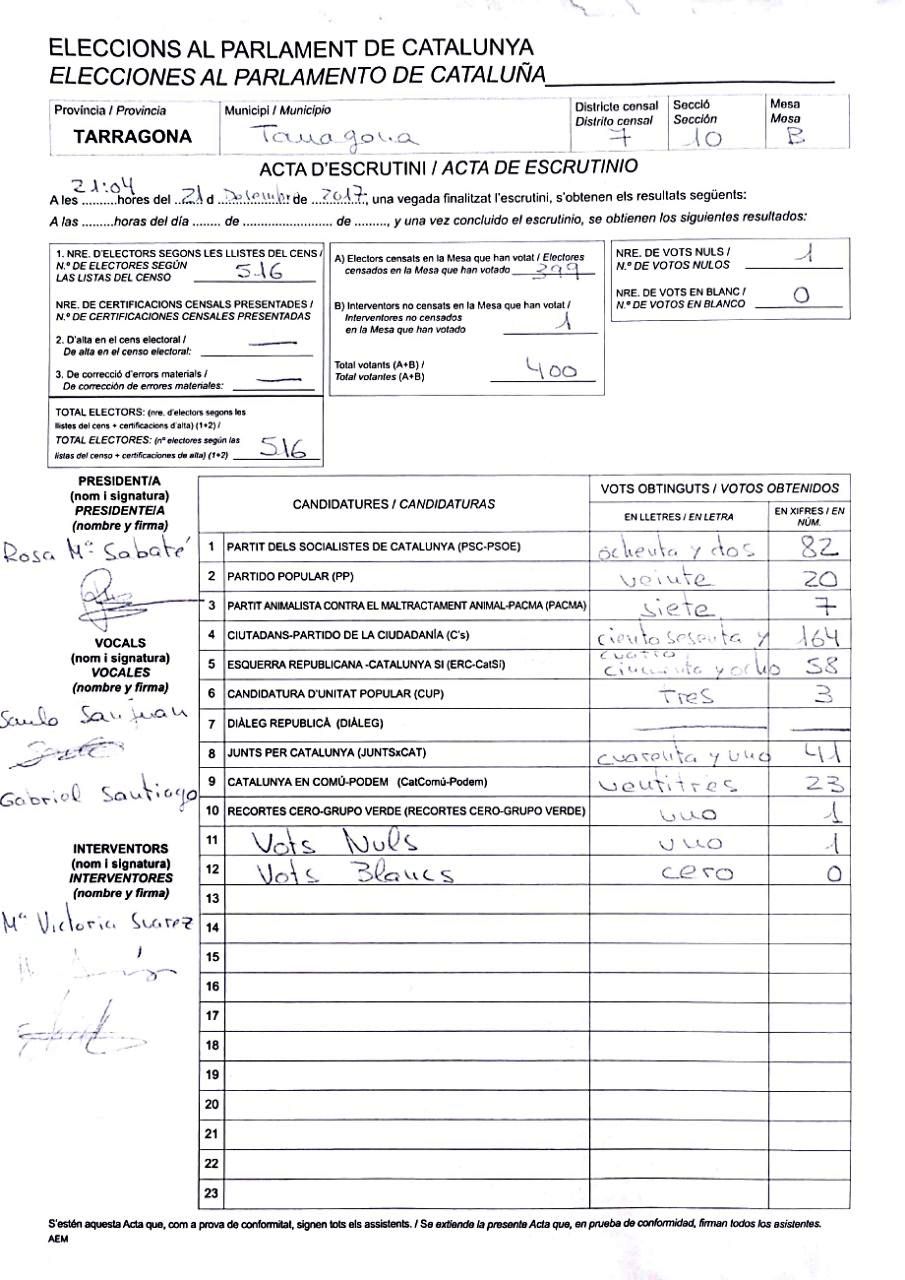 ELECCIONS AL PARLAMENT DE CATALUNYA
ELECCIONES AL PARLAMENTO DE CATALUÑA
Provincia / Provincia
TARRAGONA
Municipi / Municipio
Tarragona
Districte censal
Distrito censal
7
Secció
Sección
10
Mesa
Mesa
B
ACTA D'ESCRUTINI / ACTA DE ESCRUTINIO
21:04
A les .........hores del ..21 d Desembre de ...2017, una vegada finalitzat l'escrutini, s'obtenen els resultats següents:
A las .........horas del día ...... de ........................ de ........., y una vez concluido el escrutinio, se obtienen los siguientes resultados:
1. NRE. D'ELECTORS SEGONS LES LLISTES DEL CENS /
N.º DE ELECTORES SEGÚN
LAS LISTAS DEL CENSO 516
NRE. DE CERTIFICACIONS CENSALS PRESENTADES /
N.º DE CERTIFICACIONES CENSALES PRESENTADAS
2. D'alta en el cens electoral /
De alta en el censo electoral:
3. De correcció d'errors materials /
De corrección de errores materiales:
TOTAL ELECTORS: (nre. d'electors segons les
llistes del cens + certificacions d'alta) (1+2) /
TOTAL ELECTORES: (nº electores según las
listas del censo + certificaciones de alta) (1+2) 516
A) Electors censats en la Mesa que han votat / Electores
censados en la Mesa que han votado 399
B) Interventors no censats en la Mesa que han votat /
Interventores no censados
en la Mesa que han votado 1
Total votants (A+B) /
Total votantes (A+B) 400
NRE. DE VOTS NULS /
N.º DE VOTOS NULOS 1
NRE. DE VOTS EN BLANC /
N.º DE VOTOS EN BLANCO 0
PRESIDENT/A
(nom i signatura)
PRESIDENTE/A
(nombre y firma)
Rosa Mª Sabaté
VOCALS
(nom i signatura)
VOCALES
(nombre y firma)
Saulo Sanjuan
Gabriel Santiago
INTERVENTORS
(nom i signatura)
INTERVENTORES
(nombre y firma)
Mª Victoria Suarez
CANDIDATURES / CANDIDATURAS
VOTS OBTINGUTS / VOTOS OBTENIDOS
EN LLETRES / EN LETRA
EN XIFRES / EN NÚM.
1 PARTIT DELS SOCIALISTES DE CATALUNYA (PSC-PSOE) ochenta y dos 82
2 PARTIDO POPULAR (PP) veinte 20
3 PARTIT ANIMALISTA CONTRA EL MALTRACTAMENT ANIMAL-PACMA (PACMA) siete 7
4 CIUTADANS-PARTIDO DE LA CIUDADANÍA (C's) ciento sesenta y cuatro 164
5 ESQUERRA REPUBLICANA -CATALUNYA SI (ERC-CatSí) cincuenta y ocho 58
6 CANDIDATURA D'UNITAT POPULAR (CUP) Tres 3
7 DIÀLEG REPUBLICÀ (DIÀLEG)
8 JUNTS PER CATALUNYA (JUNTSxCAT) cuarenta y uno 41
9 CATALUNYA EN COMÚ-PODEM (CatComú-Podem) ventitrés 23
10 RECORTES CERO-GRUPO VERDE (RECORTES CERO-GRUPO VERDE) uno 1
11 Vots Nuls uno 1
12 Vots Blancs cero 0
13
14
15
16
17
18
19
20
21
22
23
S'estén aquesta Acta que, com a prova de conformitat, signen tots els assistents. / Se extiende la presente Acta que, en prueba de conformidad, firman todos los asistentes.
AEM